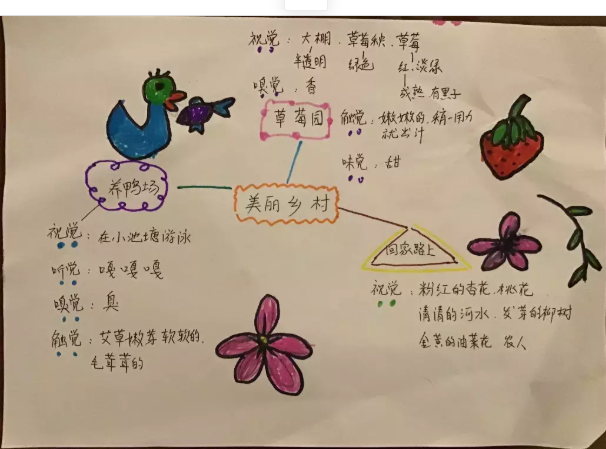 视觉：大棚．草莓秧．草莓
半透明 绿色 红．淡绿
成熟 有黑子
嗅觉：香
草莓园
触觉：嫩嫩的．稍一用力
就出汁
味觉：甜
养鸭场
美丽乡村
回家路上
视觉：在小池塘游泳
听觉：嘎嘎嘎
嗅觉：臭
触觉：艾草嫩芽软软的．
毛茸茸的
视觉：粉红的杏花．桃花
清清的河水．发芽的柳树
金黄的油菜花 农人